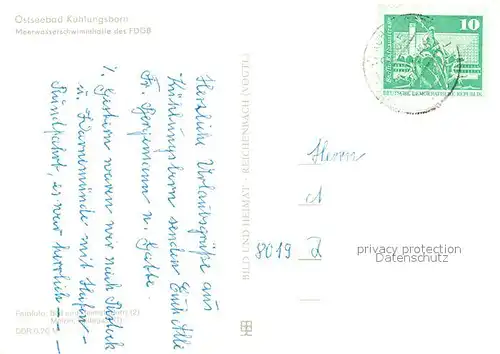 Ostseebad Kühlungsborn
Meerwasserschwimmhalle des FDGB
Herzliche Urlaubsgrüße aus
Kühlungsborn senden Euch Alle
Fr. Benjemann u. Gatte.
Gestern waren wir nach Rostock
u. Warnemünde mit Hafen-
Rundfahrt, es war herrlich - - -
Farbfoto: Bild und Heimat
DDR 0,20 M
BILD UND HEIMAT · REICHENBACH (VOGTL)
10
DEUTSCHE DEMOKRATISCHE REPUBLIK
Herrn
A
8019 D
privacy protection
Datenschutz